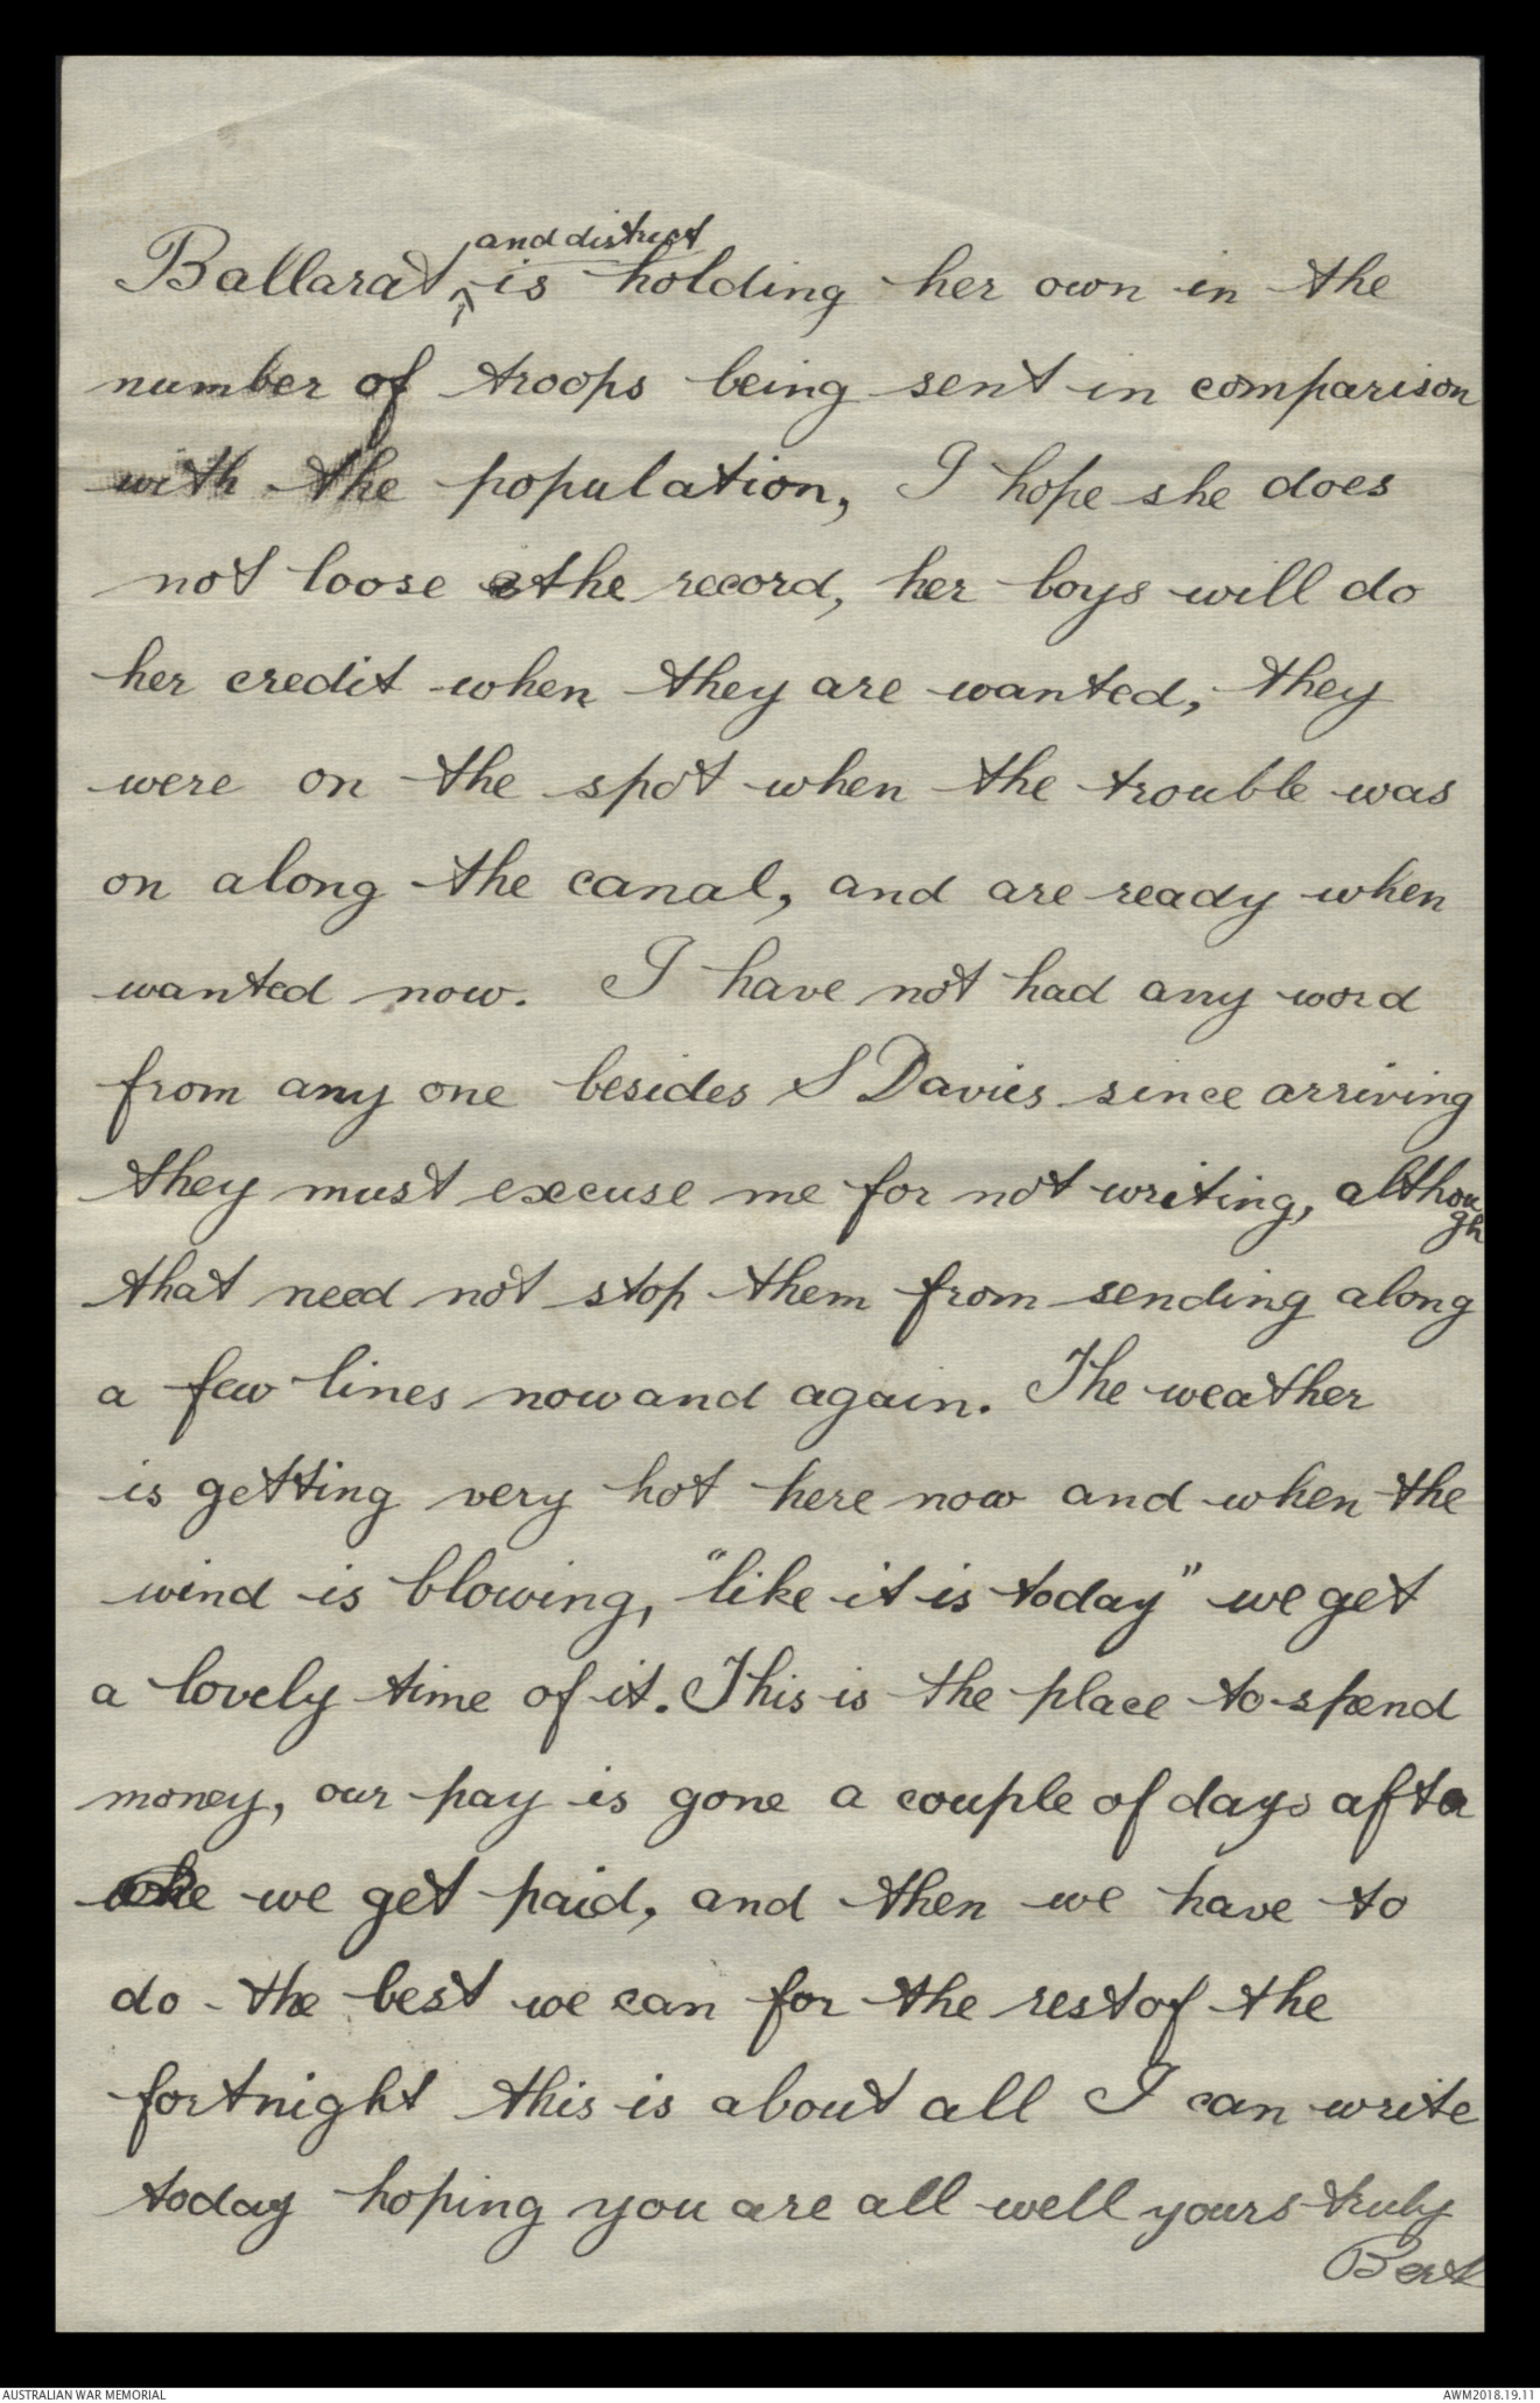 and district
Ballarat, is holding her own in the
number of troops being sent in comparison
with the population, I hope she does
not loose the record, her boys will do
her credit when they are wanted, they
were on the spot when the trouble was
on along the canal, and are ready when
wanted now. I have not had any word
from any one besides S Davies since arriving
they must excuse me for not writing, although
that need not stop them from sending along
a few lines now and again. The weather
is getting very hot here now and when the
wind is blowing, "like it is today" we get
a lovely time of it. This is the place to spend
money, our pay is gone a couple of days after
we get paid, and then we have to
do the best we can for the rest of the
fortnight this is about all I can write
today hoping you are all well yours truly
Bert
AUSTRALIAN WAR MEMORIAL
AWM2018.19.11